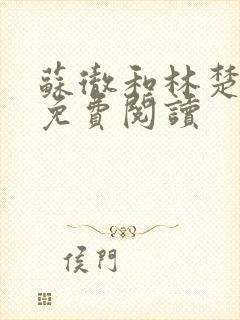 蘇徹和林楚
免費閱讀
侯門